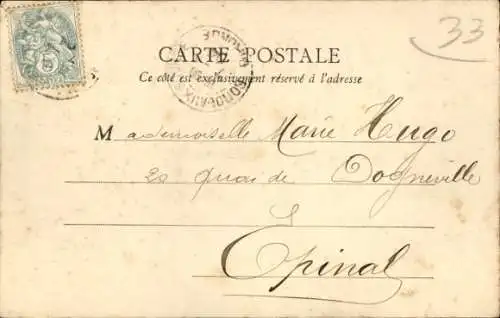 33
CARTE POSTALE
Ce côté est exclusivement réservé à l'adresse
BORDEAUX
5
Mademoiselle Marie Hugo
20 Quai de Dogneville
Epinal